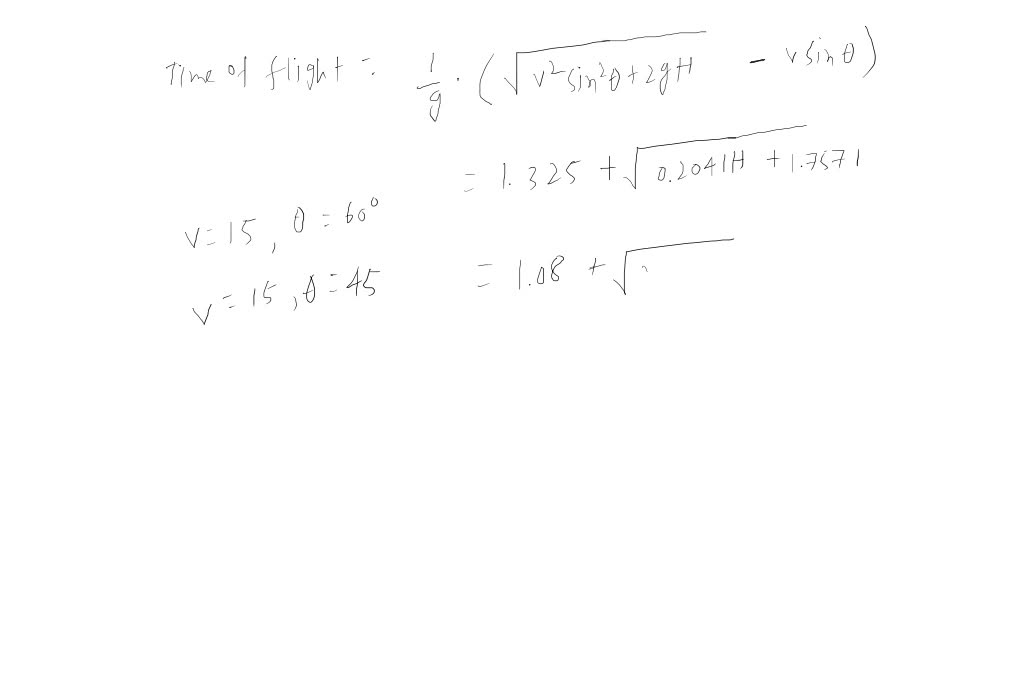 Time of flight = 1/g · (√(v² sin²θ + 2gH) - v sin θ)
= 1.325 + √(0.2041H + 1.7571
v = 15, θ = 60°
v = 15, θ = 45 = 1.08 + √